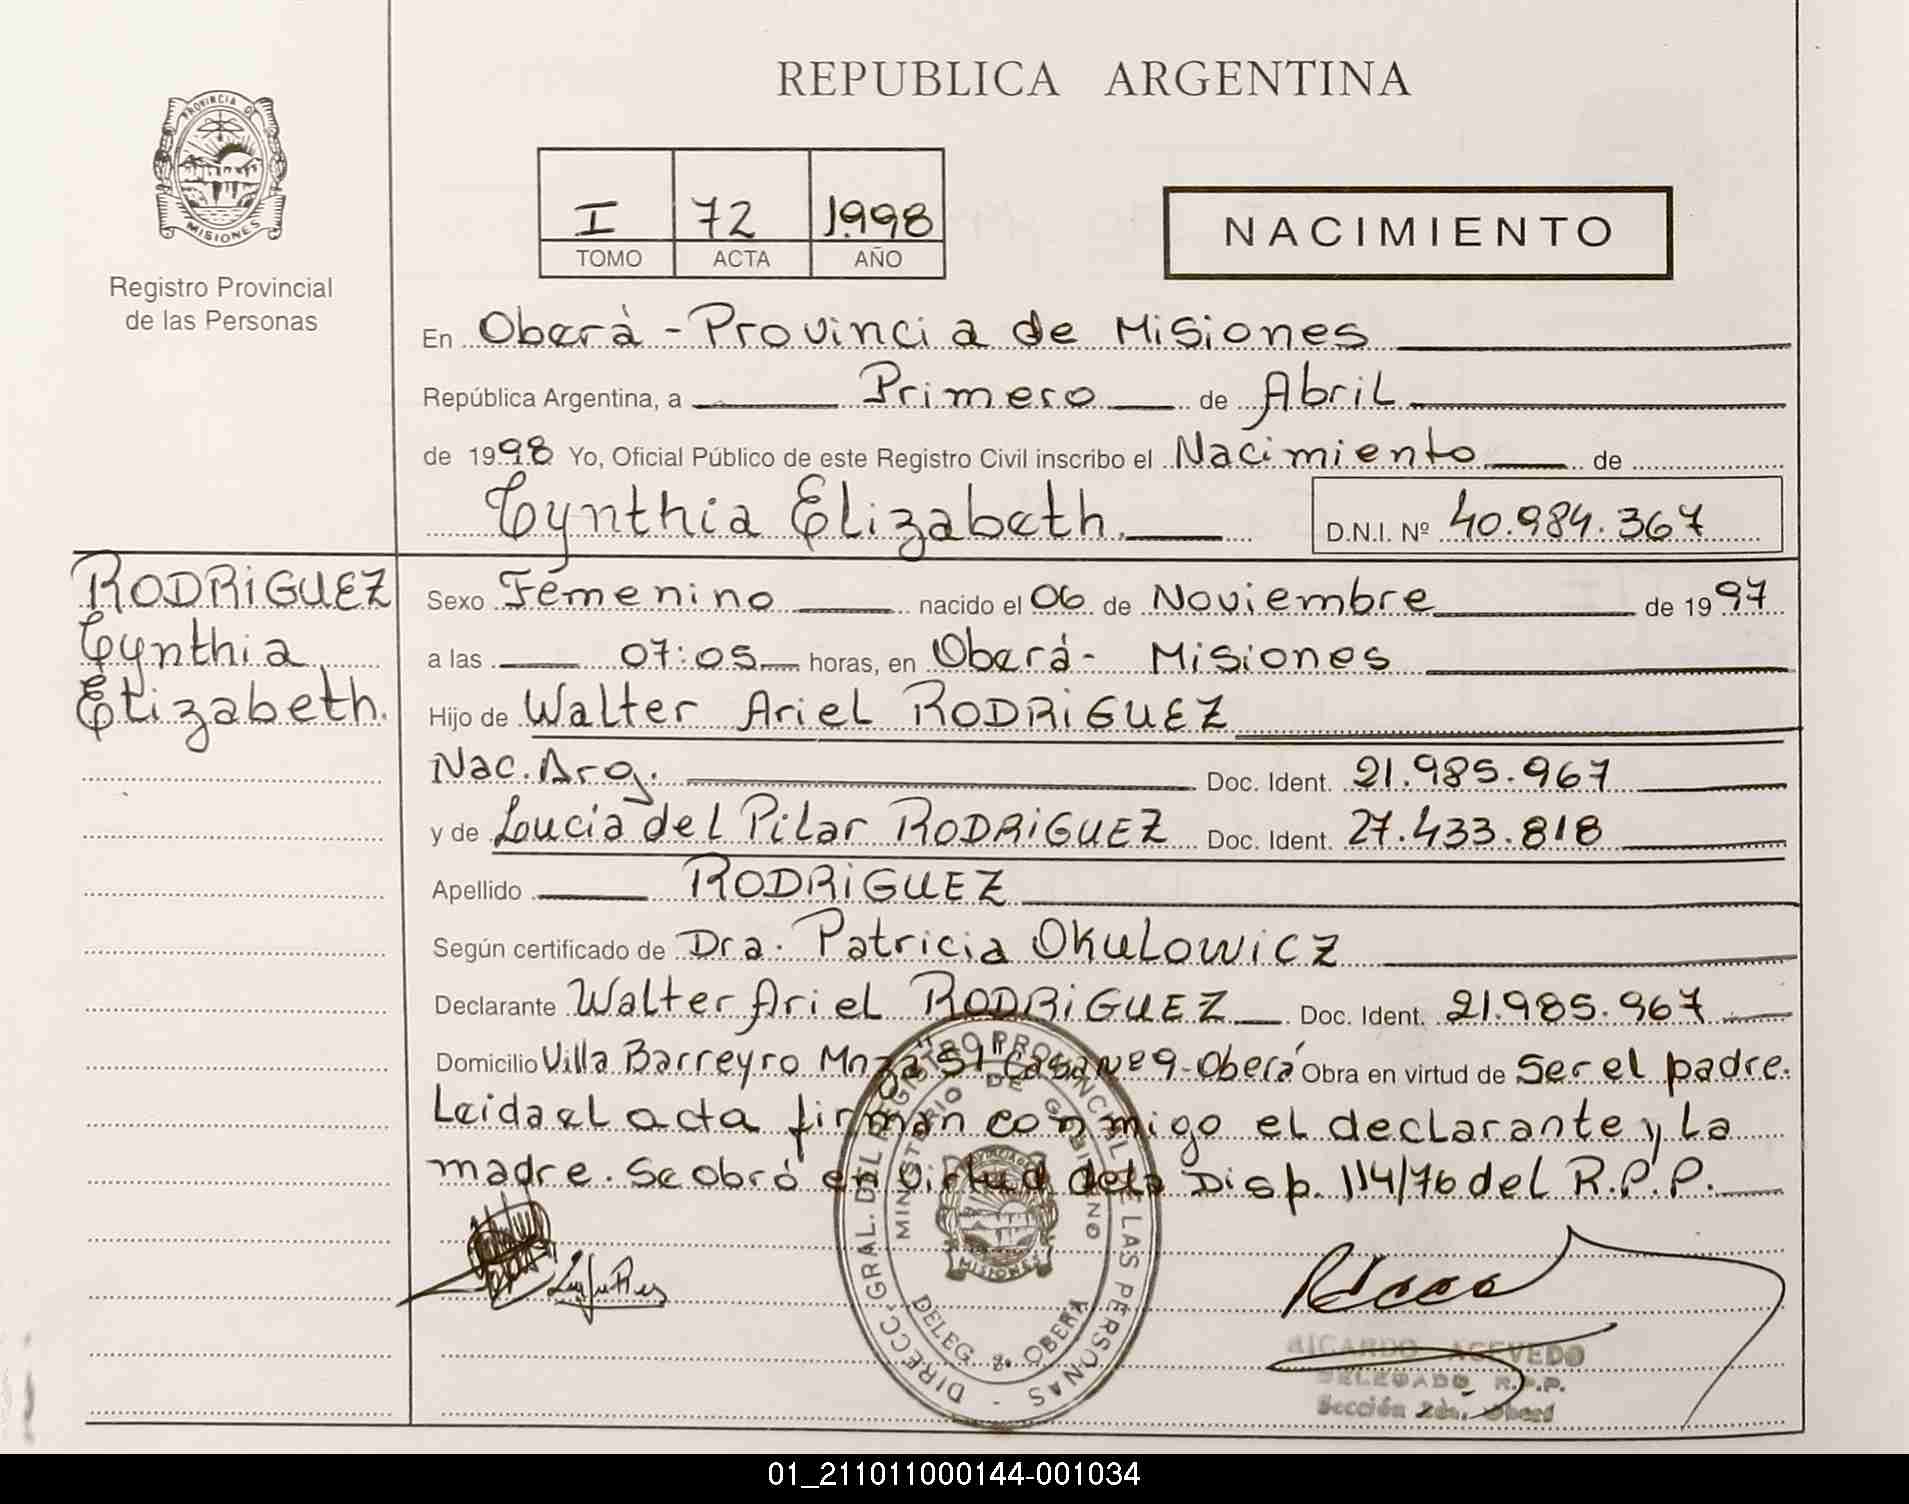 REPUBLICA ARGENTINA
PROVINCIA DE
MISIONES
Registro Provincial
de las Personas
I 72 1.998
TOMO ACTA AÑO
NACIMIENTO
En Oberá - Provincia de Misiones
República Argentina, a Primero de Abril
de 1998 Yo, Oficial Público de este Registro Civil inscribo el Nacimiento de
Cynthia Elizabeth. D.N.I. Nº 40.984.367
RODRIGUEZ
Cynthia
Elizabeth.
Sexo Femenino nacido el 06 de Noviembre de 1997
a las 07:05 horas, en Oberá - Misiones
Hijo de Walter Ariel RODRIGUEZ
Nac. Arg. Doc. Ident. 21.985.967
y de Lucia del Pilar RODRIGUEZ Doc. Ident. 27.433.818
Apellido RODRIGUEZ
Según certificado de Dra. Patricia OKULOWICZ
Declarante Walter Ariel RODRIGUEZ Doc. Ident. 21.985.967
Domicilio Villa Barreyro Mnza "51" Casa Nº 9 - Oberá Obra en virtud de Ser el padre.
Leida el acta firman conmigo el declarante y La
madre. Se obró en virtud de la Disp. 114/76 del R.P.P.
DIRECC. GRAL. DEL REGISTRO PROVINCIAL DE LAS PERSONAS
MINISTERIO DE GOBIERNO
MISIONES
DELEG. OBERA
RICARDO ACEVEDO
DELEGADO R.P.P.
Sección 2da. Oberá
01_211011000144-001034